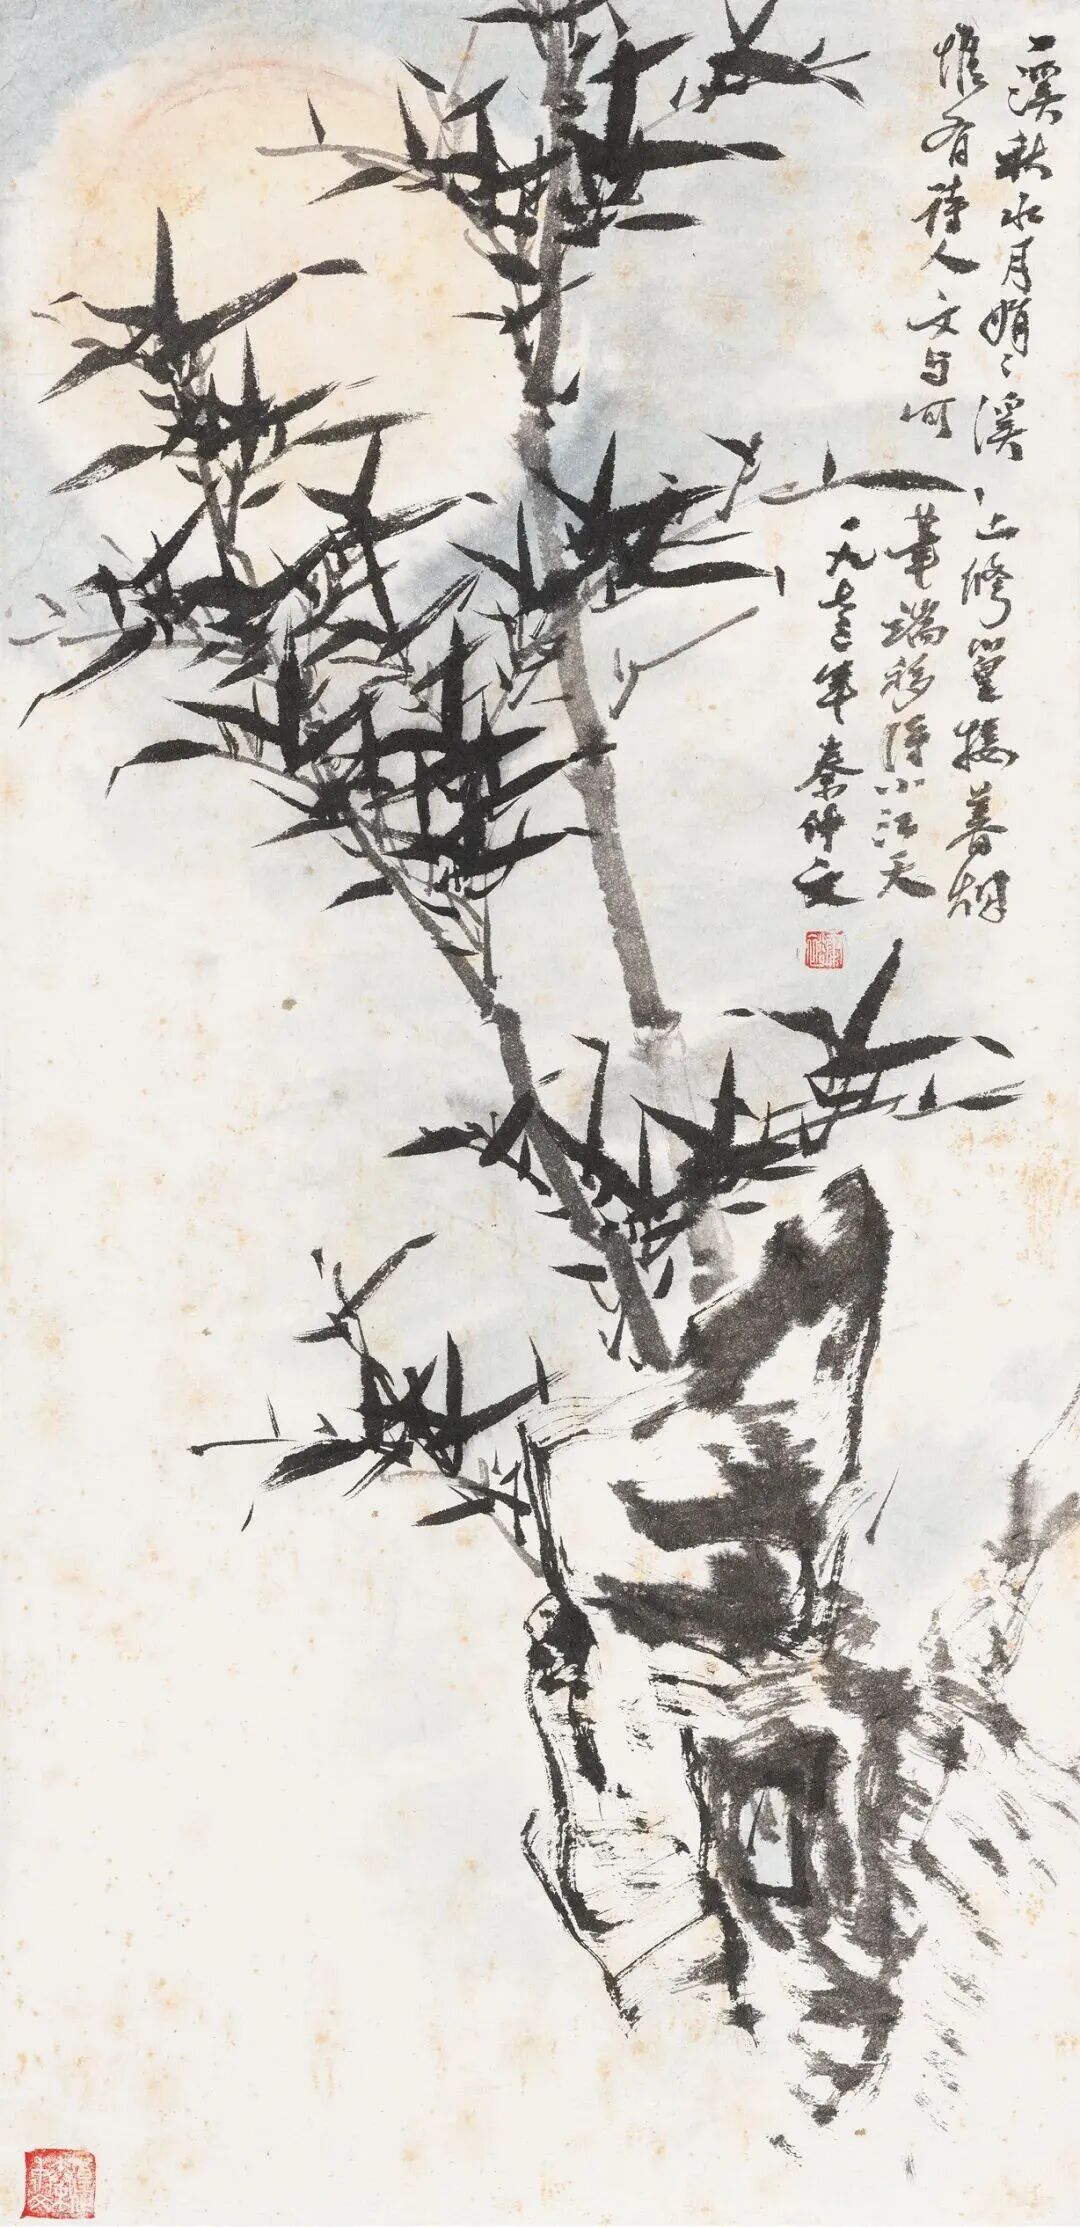 一溪秋水月娟〻溪上修篁接暮烟
惟有詩人文与可筆端移得小江天
一九七三年秦仲文